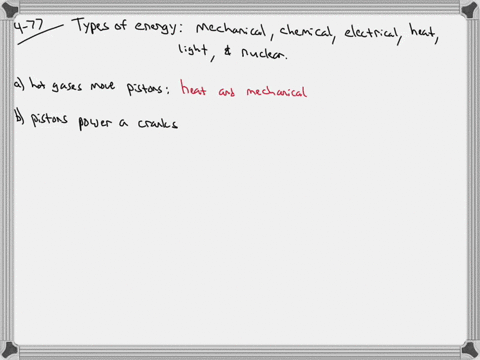 4-77 Types of energy: mechanical, chemical, electrical, heat,
light, & nuclear.
a) hot gases move pistons: heat and mechanical
b) pistons power a cranks